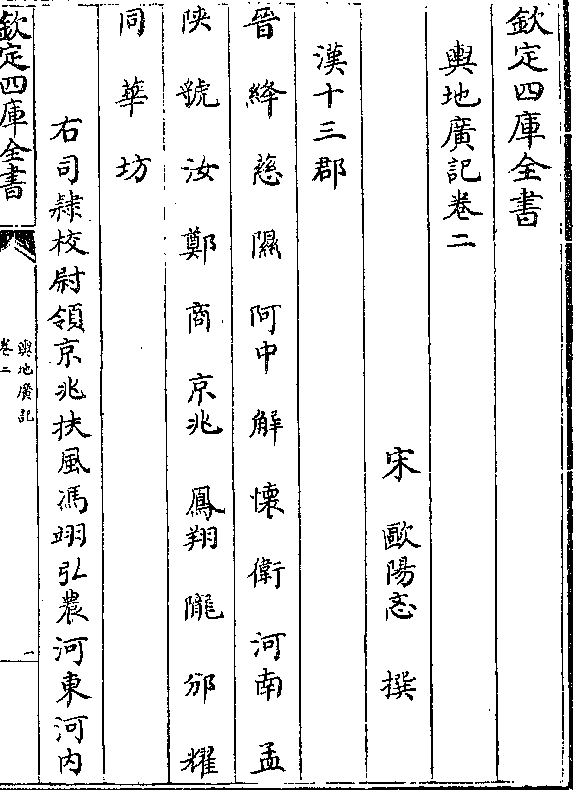 欽定四庫全書
輿地廣記卷二
宋 歐陽忞 撰
漢十三郡
晉 絳 慈 隰 河中 解 懷 衛 河南 孟
陜 虢 汝 鄭 商 京兆 鳳翔 隴 邠 耀
同 華 坊
右司隸校尉領京兆扶風馮翊弘農河東河内
欽定四庫全書
輿地廣記
卷二
一